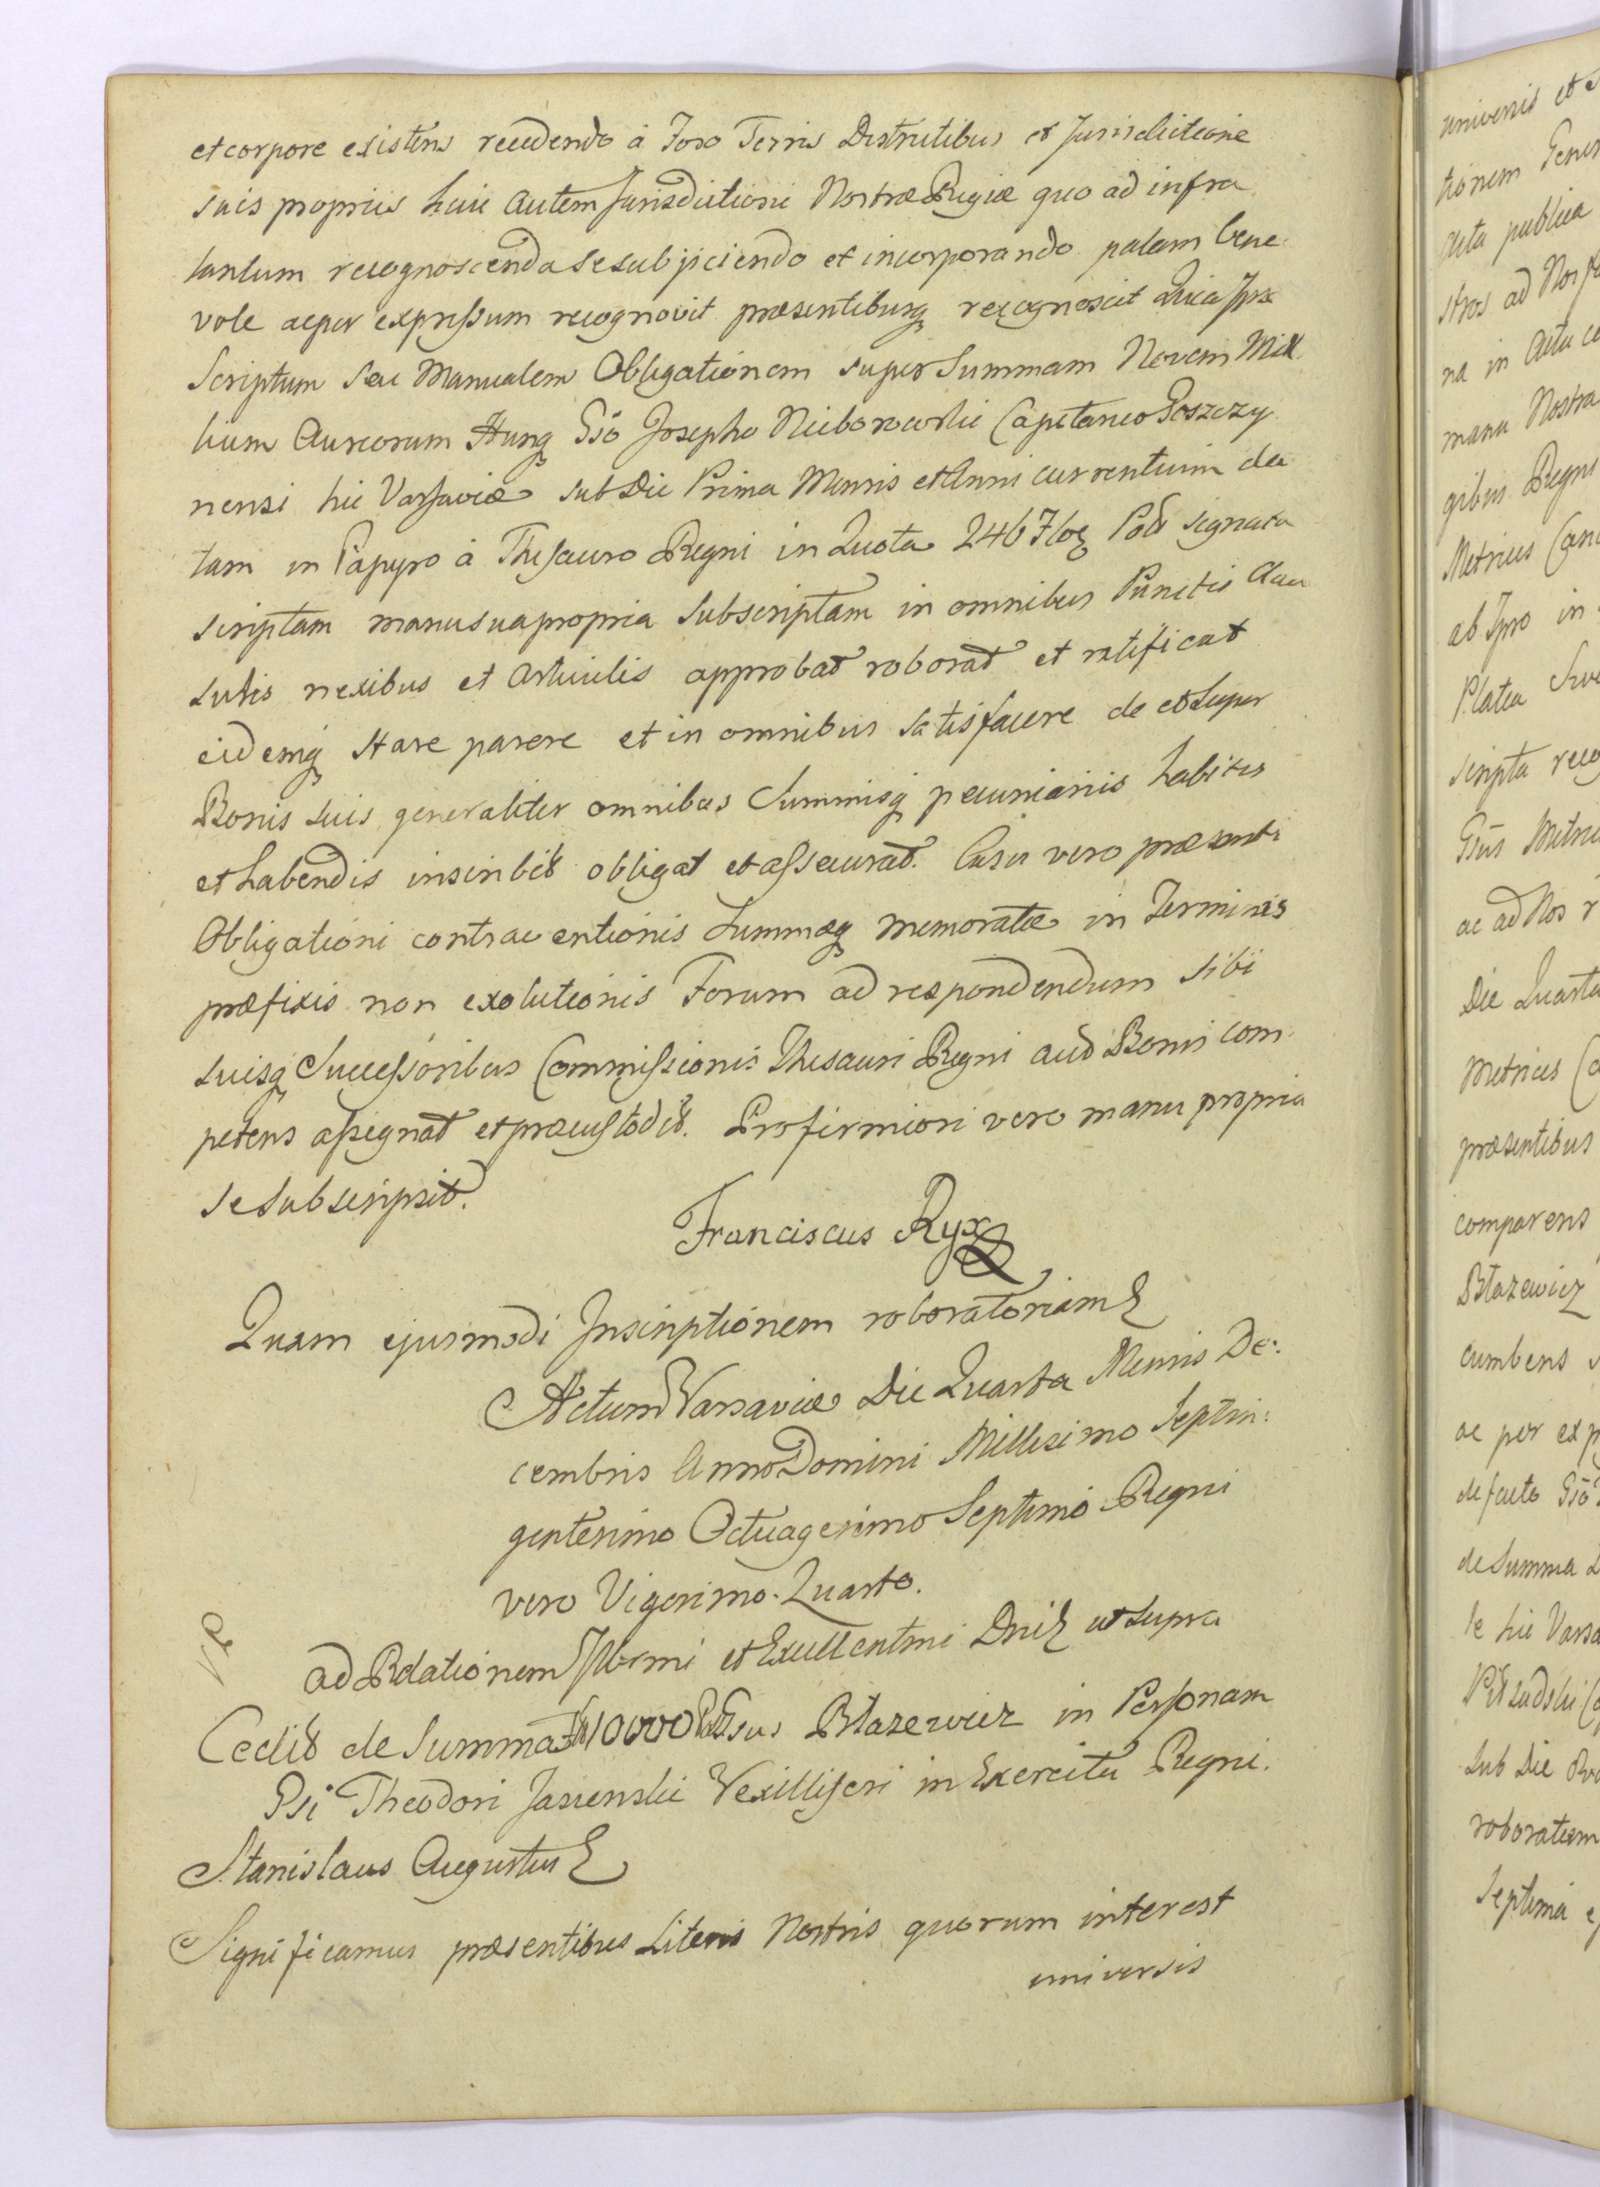 et corpore existens recedendo à Foro Terris Districtibus et Jurisdictione
suis propriis huic autem Jurisdictioni Nostræ Regiæ quo ad infra
tantum recognoscenda se subjiciendo et incorporando palam bene
vole ac per expressum recognovit præsentibusq recognoscit Quia Ipse
Scriptum seu Manualem Obligationem super Summam Novem Mil
lium Aureorum Hung Gso Josepho Nieborowski Capitaneo Goszczy
nensi hic Varsaviæ sub Die Prima Mensis et Anni currentium da
tam in Papyro à Thesauro Regni in Quota 246 Flor Pol signata
scriptam manu sua propria subscriptam in omnibus Punctis Clau
sulis nexibus et Articulis approbat roborat et ratificat
eidemq stare parere et in omnibus satisfacere de et super
Bonis suis generaliter omnibus Summisq pecuniariis habitis
et habendis inscribit obligat et assecurat. Casu vero præsenti
Obligationi contraventionis Summæq memoratæ in Terminis
præfixis non exolutionis Forum ad respondendum sibi
suisq Successoribus Commissionis Thesauri Regni aut Bonis com
petens assignat et præcustodit. Pro firmiori vero manu propria
se subscripsit.
Franciscus Ryx
Quam ejusmodi Inscriptionem roboratoriam
Actum Varsaviæ Die Quarta Mensis De:
cembris Anno Domini Millesimo Septin:
gentesimo Octuagesimo Septimo Regni
vero Vigesimo Quarto.
ad Relationem Illrmi et Excellentmi Dni ut supra
Cedit de Summa 10000 Gsus Błazewicz in Personam
Gsi Theodori Jasienski Vexilliferi in Exercitu Regni.
Stanislaus Augustus
Significamus præsentibus Literis Nostris quorum interest
universis
universis et
tionem Gener
Acta publica
stros ad
na in Actu
manu Nostra
gibus Regni
Metrices Can
ab Ipso in
Platea
scripta recog
Gsus
ac ad Nos
Die Quarta
Metrices
præsentibus
comparens
Błazewicz
cumbens
ac per exp
de facto Gso
de Summa
le hic Varsa
sub Die
roboratum
Septima